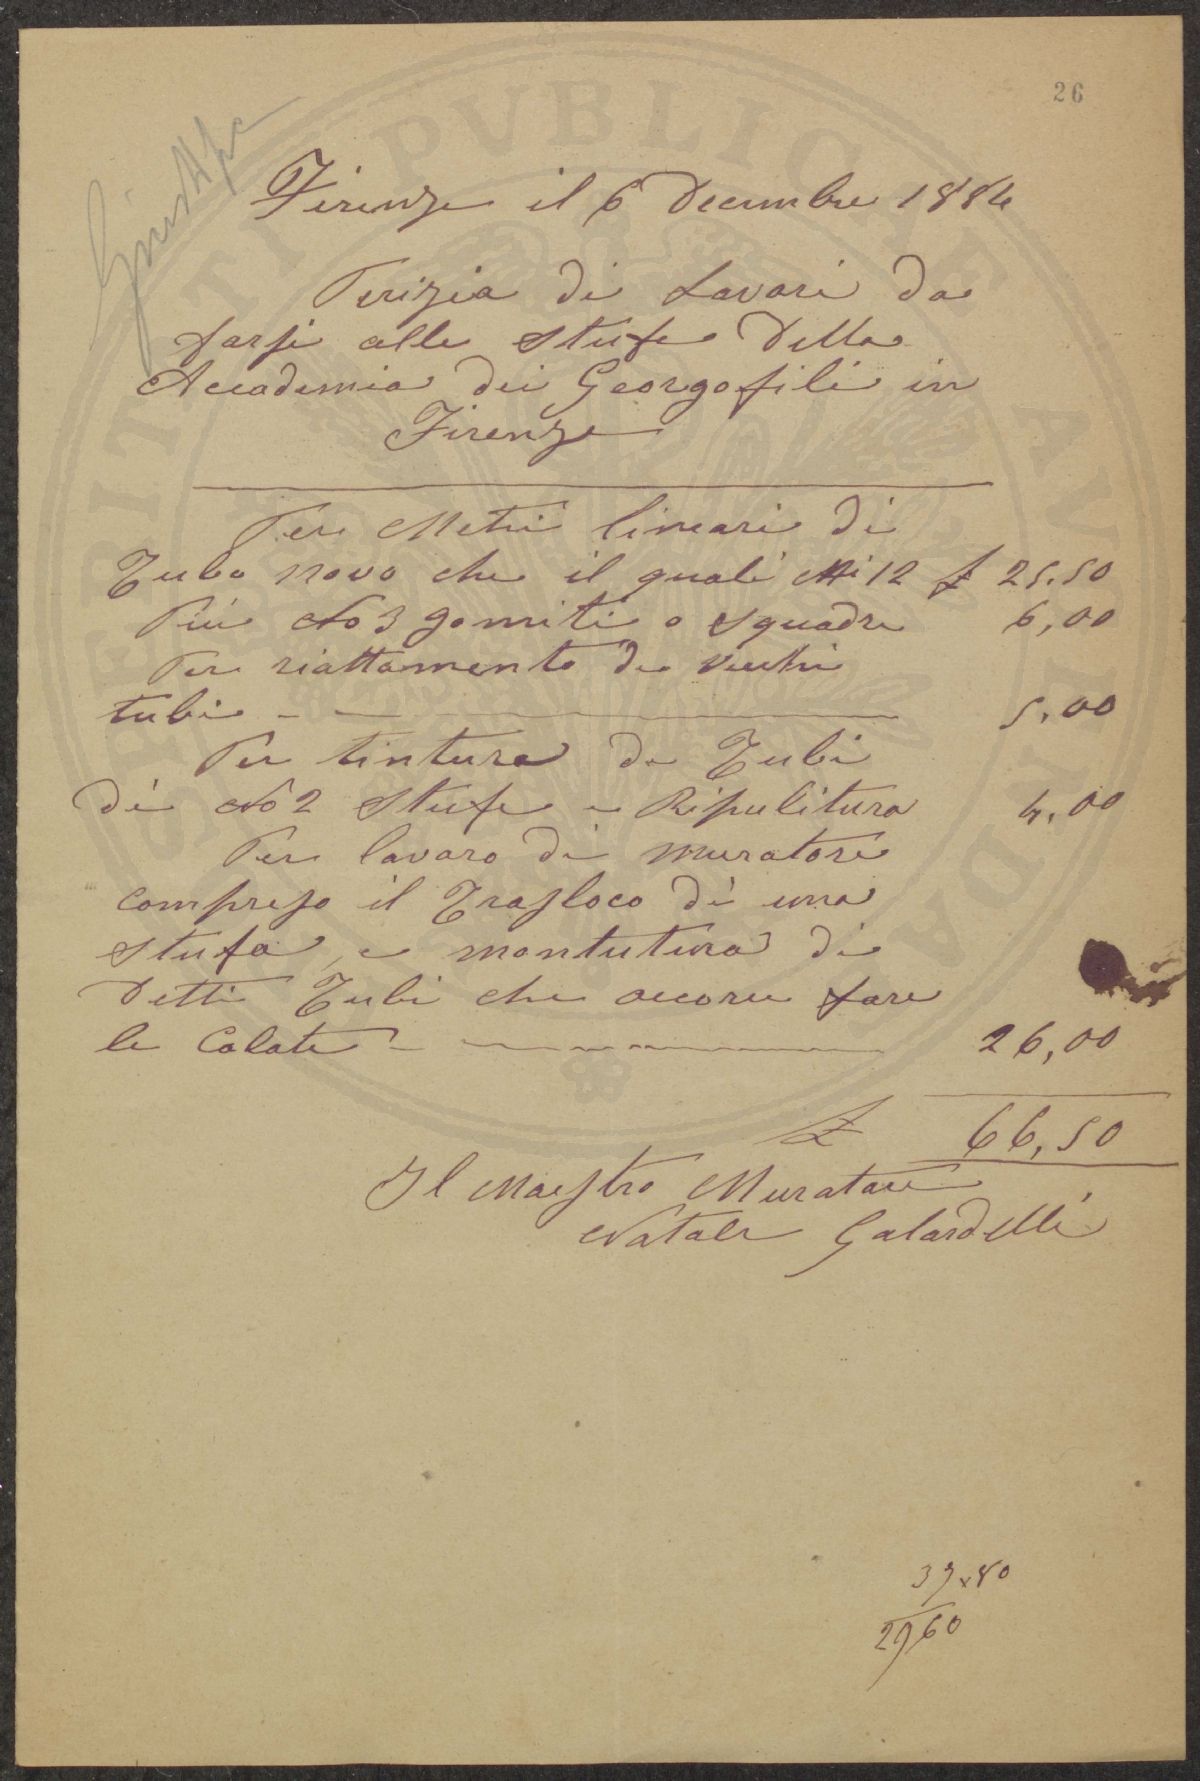 26
Firenze il 6 Decembre 1884
Perizia di Lavori da
farsi alle Stufe Della
Accademia dei Georgofili in
Firenze
Per Metri lineari di
Tubo novo che il quali Mi 12 £ 25.50
Più No 3 gomiti o squadre 6,00
Per riattamento de vecchi
tubi 5,00
Per tintura de Tubi
di No 2 Stufe e Ripulitura 4,00
Per lavoro di muratore
compreso il Trasloco di una
stufa, e montutura di
Detti Tubi che occorre fare
le Calate 26,00
£ 66,50
Il Maestro Muratore
Natale Galardelli
37x80
2960